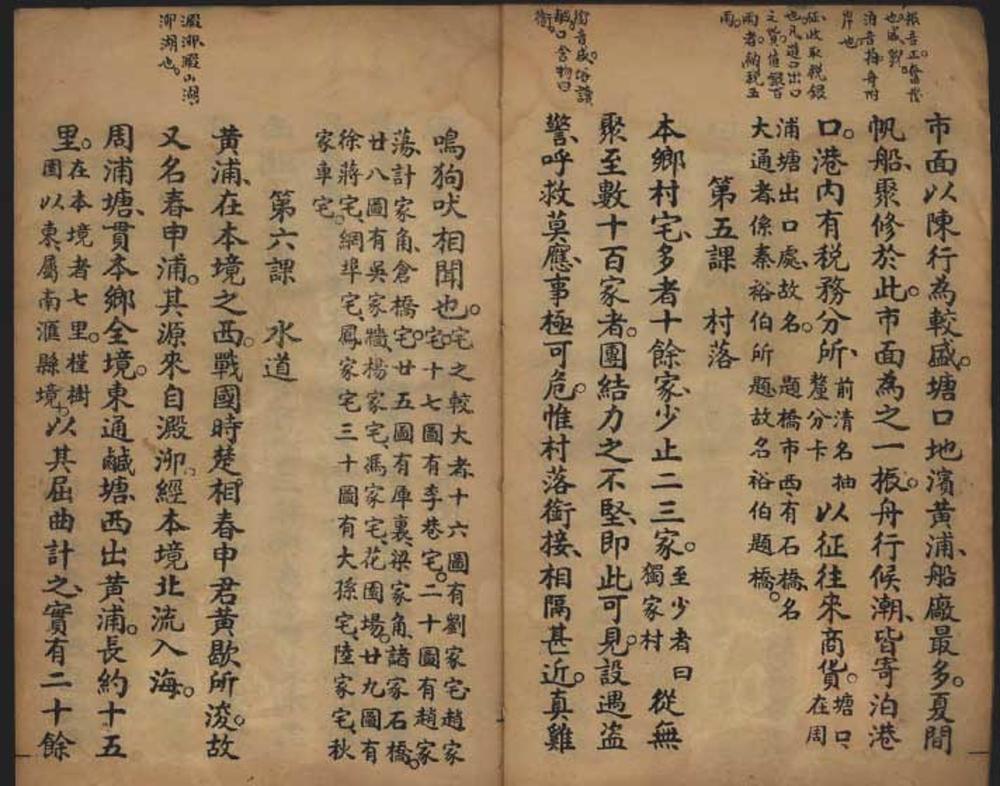 振音正奮發
也威觀
泊音拍舟附
岸也
征收取稅銀
也凡進口出口
之貨值銀百
兩者納稅五
兩
銜音咸俗讀
啣口含物曰
銜
市面以陳行為較盛。塘口地濱黃浦、船廠最多。夏間
帆船、聚修於此。市面為之一振。舟行候潮、皆寄泊港
口。港內有稅務分所、前清名抽釐分卡以征往來商貨。塘口、在周
浦塘出口處、故名。題橋市西、有石橋、名
大通者、係秦裕伯所題、故名裕伯題橋。
第五課 村落
本鄉村宅、多者十餘家、少止二三家。至少者曰獨家村從無
聚至數十百家者。團結力之不堅、即此可見。設遇盜
警、呼救莫應、事極可危。惟村落銜接、相隔甚近。真雞
鳴狗吠相聞也。宅之較大者、十六圖有劉家宅、趙家
宅、十七圖有李巷宅。二十圖有趙家
蕩、計家角、倉橋宅、廿五圖有庫裏、梁家角、諸家石橋。
廿八圖有吳家牆、楊家宅、馮家宅、花園場。廿九圖有
徐蔣宅、網埠宅、鳳家宅三十圖有大孫宅、陸家宅、秋
家車宅。
第六課 水道
黃浦、在本境之西。戰國時楚相春申君黃歇所浚。故
又名春申浦。其源來自澱泖。經本境北流入海。
周浦塘、貫本鄉全境。東通鹹塘、西出黃浦。長約十五
里。在本境者七里。槿樹園以東、屬南滙縣境。以其屈曲計之、實有二十餘
澱泖、澱山湖、
泖湖也。